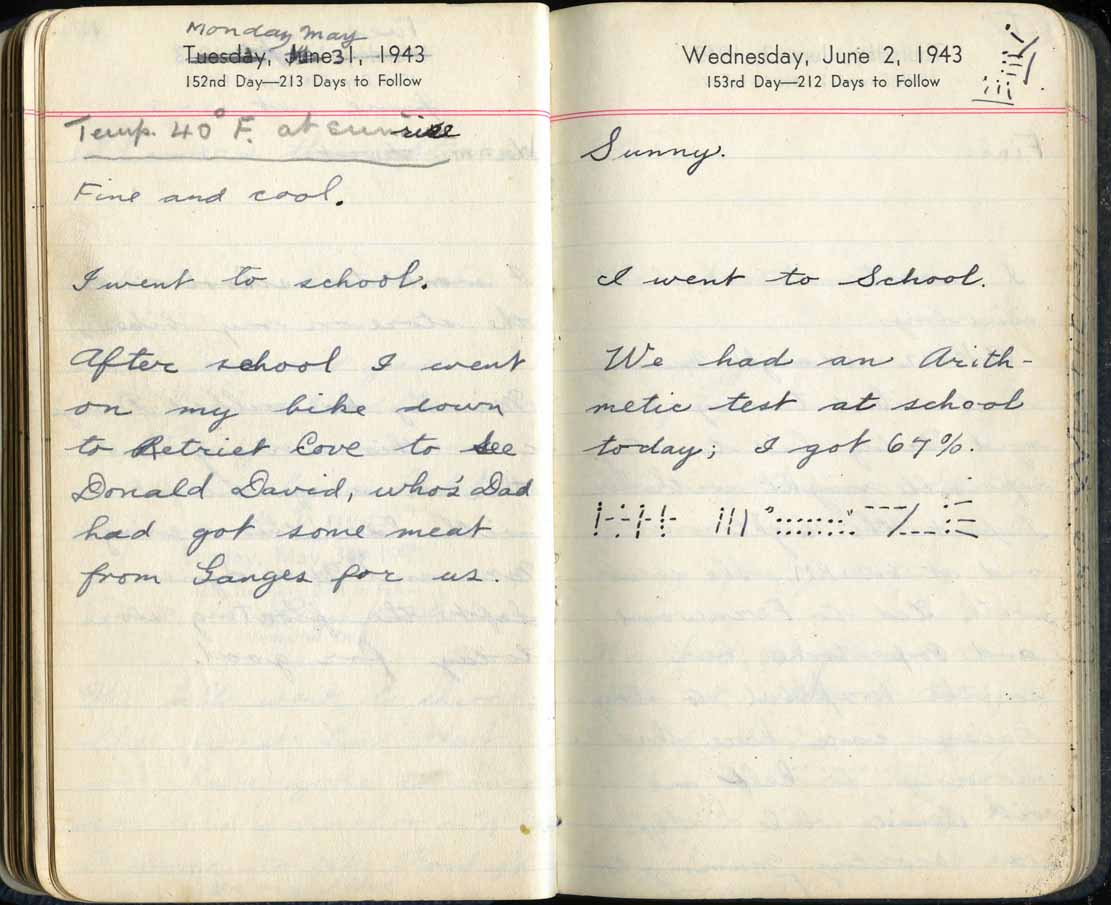 Monday May
Tuesday, June 31, 1943
152nd Day—213 Days to Follow
Temp. 40° F. at sunrise
Fine and cool.
I went to school.
After school I went
on my bike down
to Retriet Cove to see
Donald David, who's Dad
had got some meat
from Ganges for us.
Wednesday, June 2, 1943
153rd Day—212 Days to Follow
Sunny.
I went to School.
We had an Arith-
metic test at school
today; I got 67%.